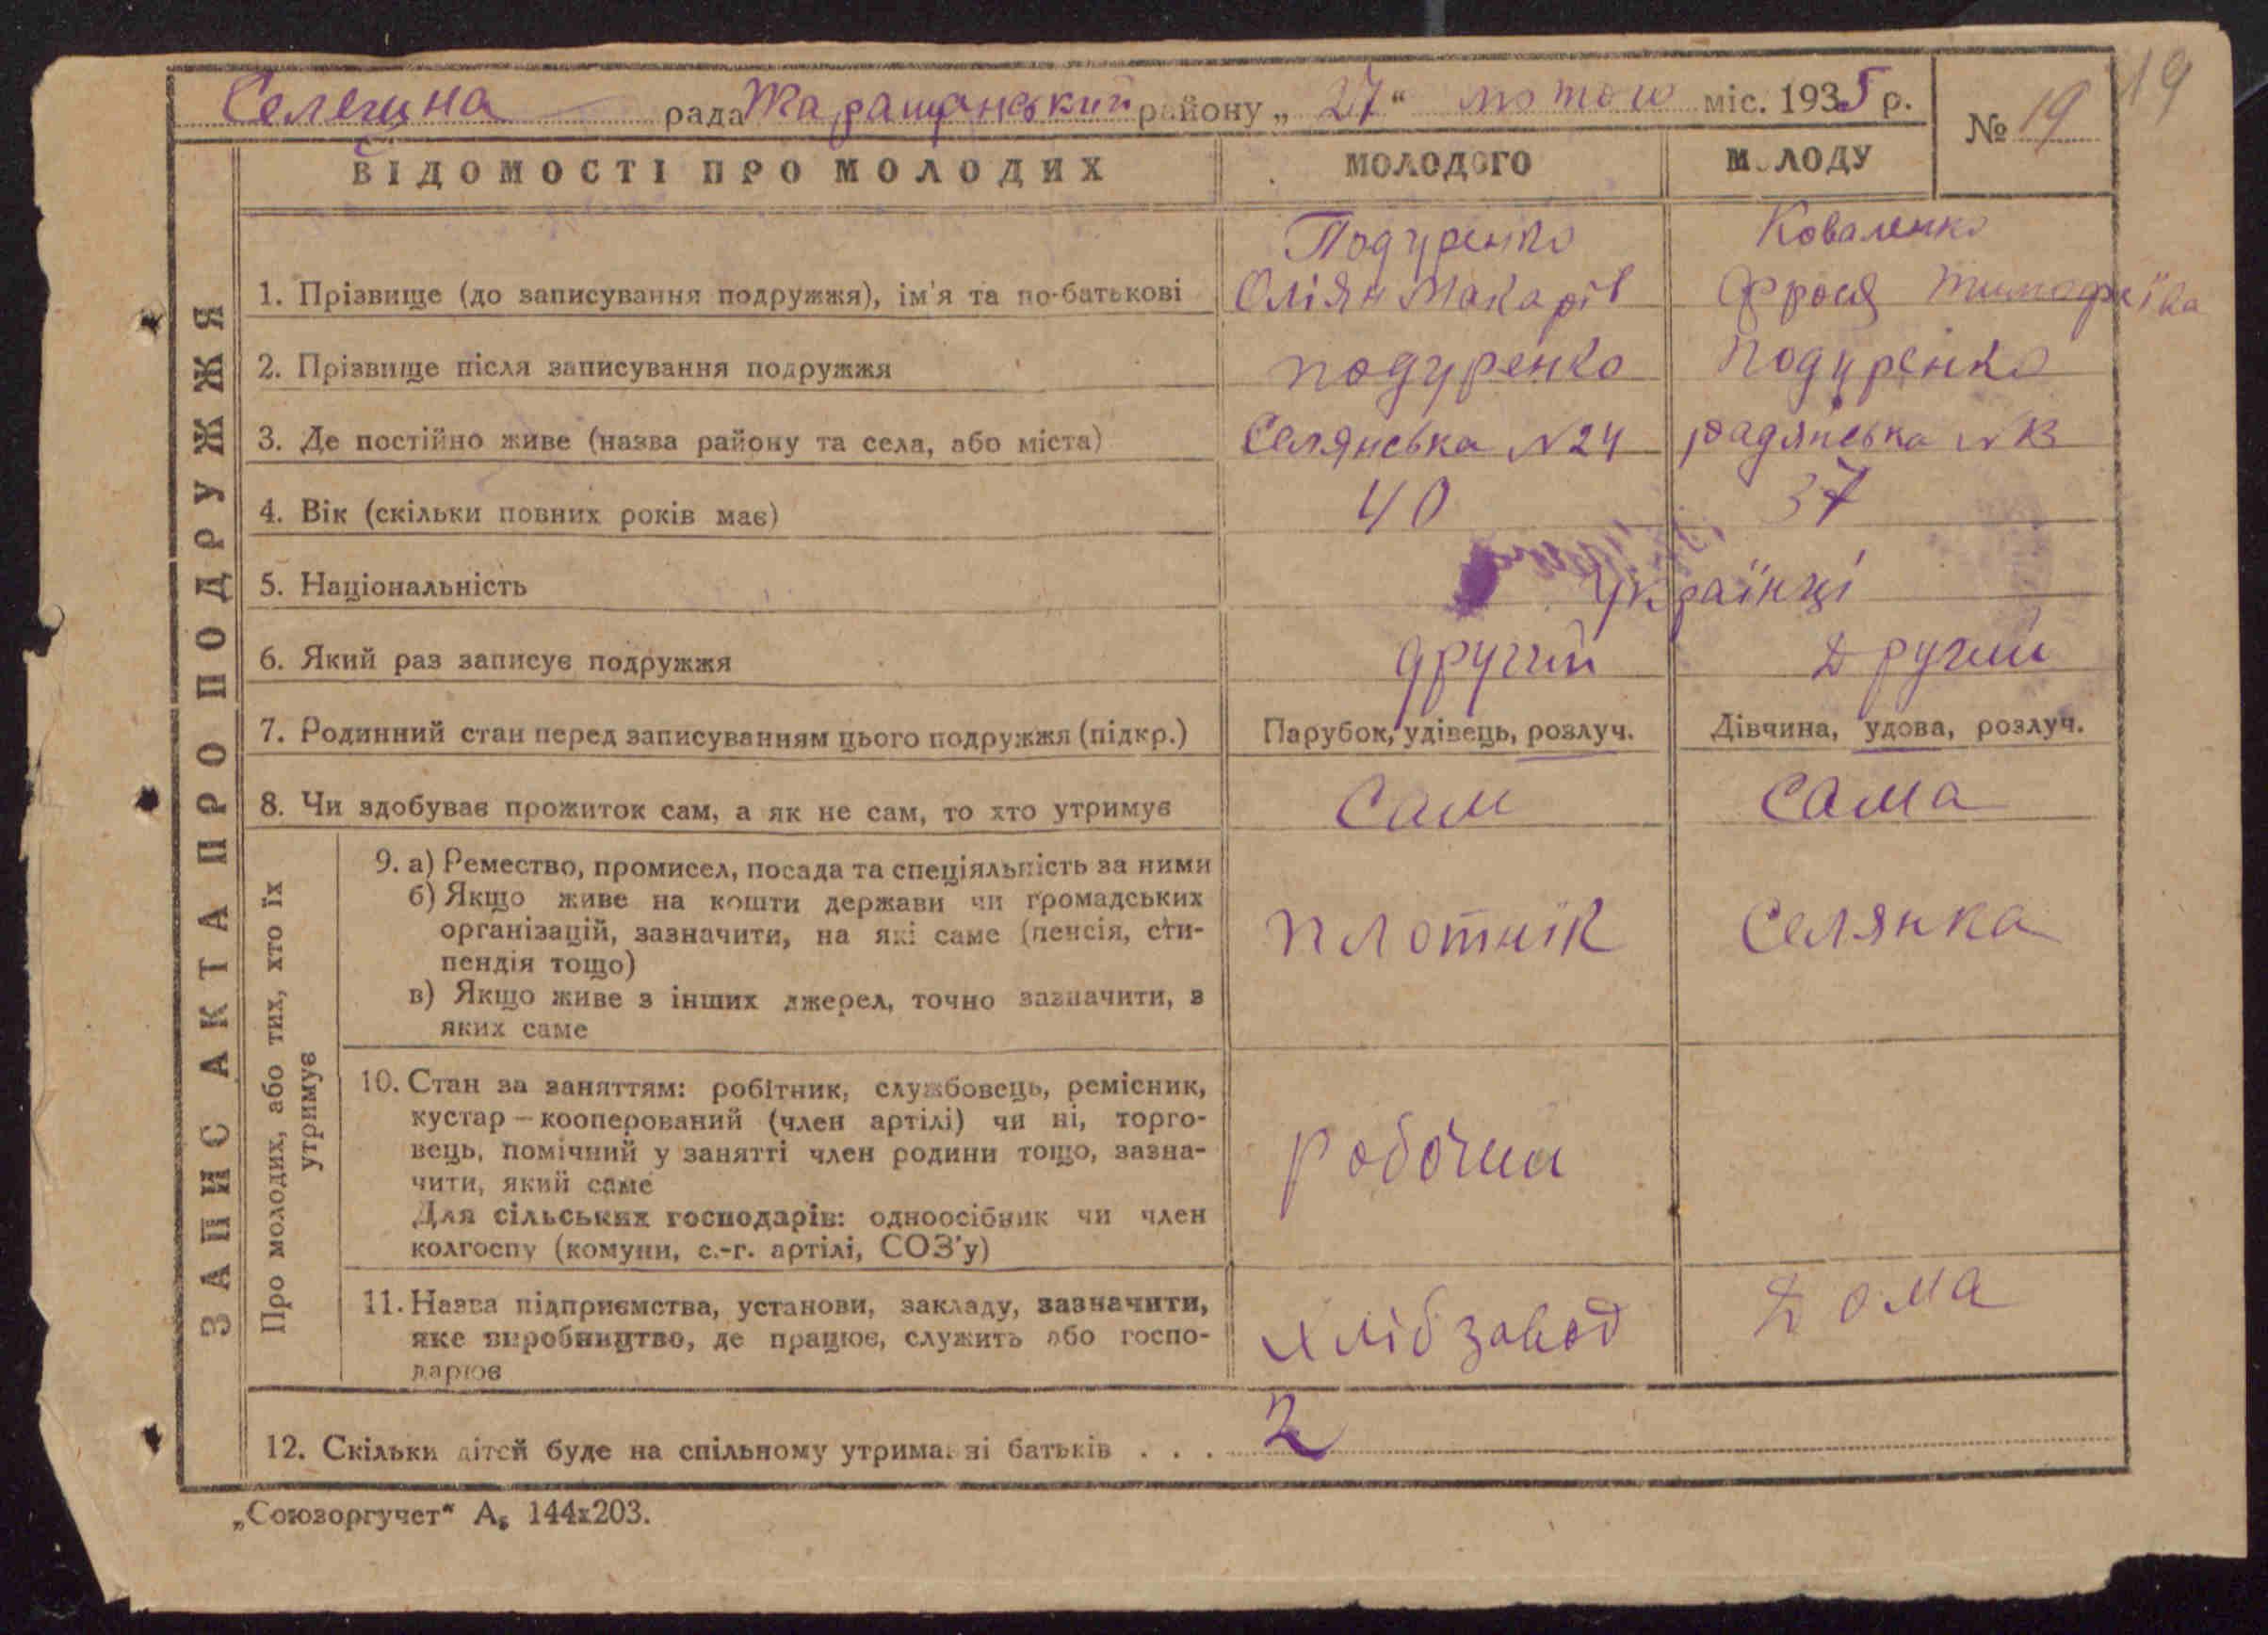 19
Селещна рада Таращанський району „27“ лютого міс. 1935 р.
№ 19
ВІДОМОСТІ ПРО МОЛОДИХ МОЛОДОГО МОЛОДУ
ЗАПИС АКТА ПРО ПОДРУЖЖЯ
Подуренко Коваленко
1. Прізвище (до записування подружжя), ім'я та по-батькові Оліян Макарів Фрося Тимофеїва
2. Прізвище після записування подружжя подуренко Подуренко
3. Де постійно живе (назва району та села, або міста) Селянська N24 радянська N 13
4. Вік (скільки повних років має) 40 37
5. Національність Українці
6. Який раз записує подружжя другий Другий
7. Родинний стан перед записуванням цього подружжя (підкр.) Парубок, удівець, розлуч. Дівчина, удова, розлуч.
8. Чи здобуває прожиток сам, а як не сам, то хто утримує Сам Сама
Про молодих, або тих, хто їх
утримує
9. а) Ремество, промисел, посада та спеціяльність за ними
б) Якщо живе на кошти держави чи громадських
організацій, зазначити, на які саме (пенсія, сти-
пендія тощо)
в) Якщо живе з інших джерел, точно зазначити, з
яких саме
плотнік Селянка
10. Стан за заняттям: робітник, службовець, ремісник,
кустар — кооперований (член артілі) чи ні, торго-
вець, помічний у занятті член родини тощо, зазна-
чити, який саме
Для сільських господарів: одноосібник чи член
колгоспу (комуни, с.-г. артілі, СОЗ'у)
робочий
11. Назва підприємства, установи, закладу, зазначити,
яке виробництво, де працює, служить або госпо-
дарює
Хлібзавод Дома
12. Скільки дітей буде на спільному утриманні батьків . . . 2
„Союзоргучет“ А₅ 144х203.